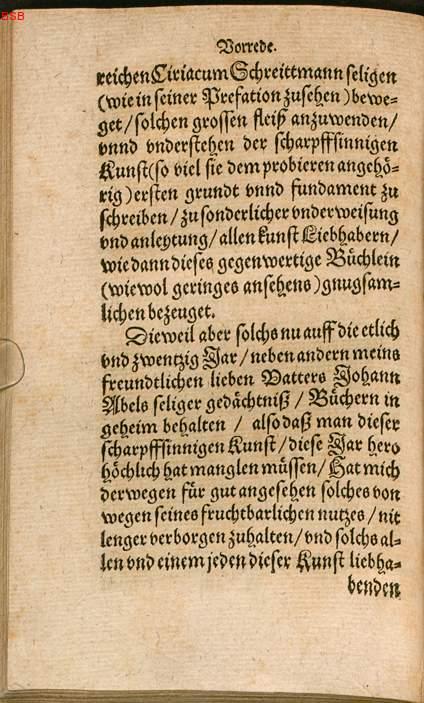 BSB
Vorrede.
reichen Ciriacum Schreittmann seligen
(wie in seiner Prefation zusehen) bewe-
get/ solchen grossen fleiß anzuwenden/
vnnd vnderstehen der scharpffsinnigen
Kunst (so viel sie dem probieren angehö-
rig) ersten grundt vnnd fundament zu
schreiben/ zu sonderlicher vnderweisung
vnd anleytung/ allen kunst Liebhabern/
wie dann dieses gegenwertige Büchlein
(wiewol geringes ansehens) gnugsam-
lichen bezeuget.
Dieweil aber solchs nu auff die etlich
vnd zwentzig Jar/ neben andern meins
freundtlichen lieben Vatters Johann
Abels seliger gedächtniß/ Büchern in
geheim behalten/ also daß man dieser
scharpffsinnigen Kunst/ diese Jar hero
höchlich hat manglen müssen/ Hat mich
derwegen für gut angesehen solches von
wegen seines fruchtbarlichen nutzes/ nit
lenger verborgen zuhalten/ vnd solchs al-
len vnd einem jeden dieser Kunst liebha-
benden